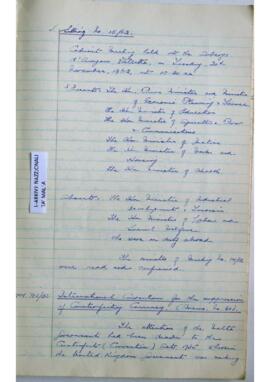 Sitting No. 15/62.
Cabinet Meeting held at the Auberge
d'Aragon, Valletta, on Tuesday, 20th
November, 1962, at 10.30 am
Present: The Hon. Prime Minister and Minister
of Economic Planning & Finance
The Hon. Minister of Education
The Hon. Minister of Agriculture, Power
& Communications
The Hon. Minister of Justice
The Hon. Minister of Works and
Housing
The Hon. Minister of Health
Absent: The Hon. Minister of Industrial
Development & Tourism
The Hon. Minister of Labour and
Social Welfare
who were on duty abroad
The minutes of Meeting No.
were read and confirmed.
L-ARKIVJI NAZZJONALI
TA' MALTA
International Convention for the suppression
of Counterfeiting Currency (Memo. No.
The attention of the Malta
Government had been drawn to the
Counterfeit (Convention) Act 1935 whereby
the United Kingdom government was making